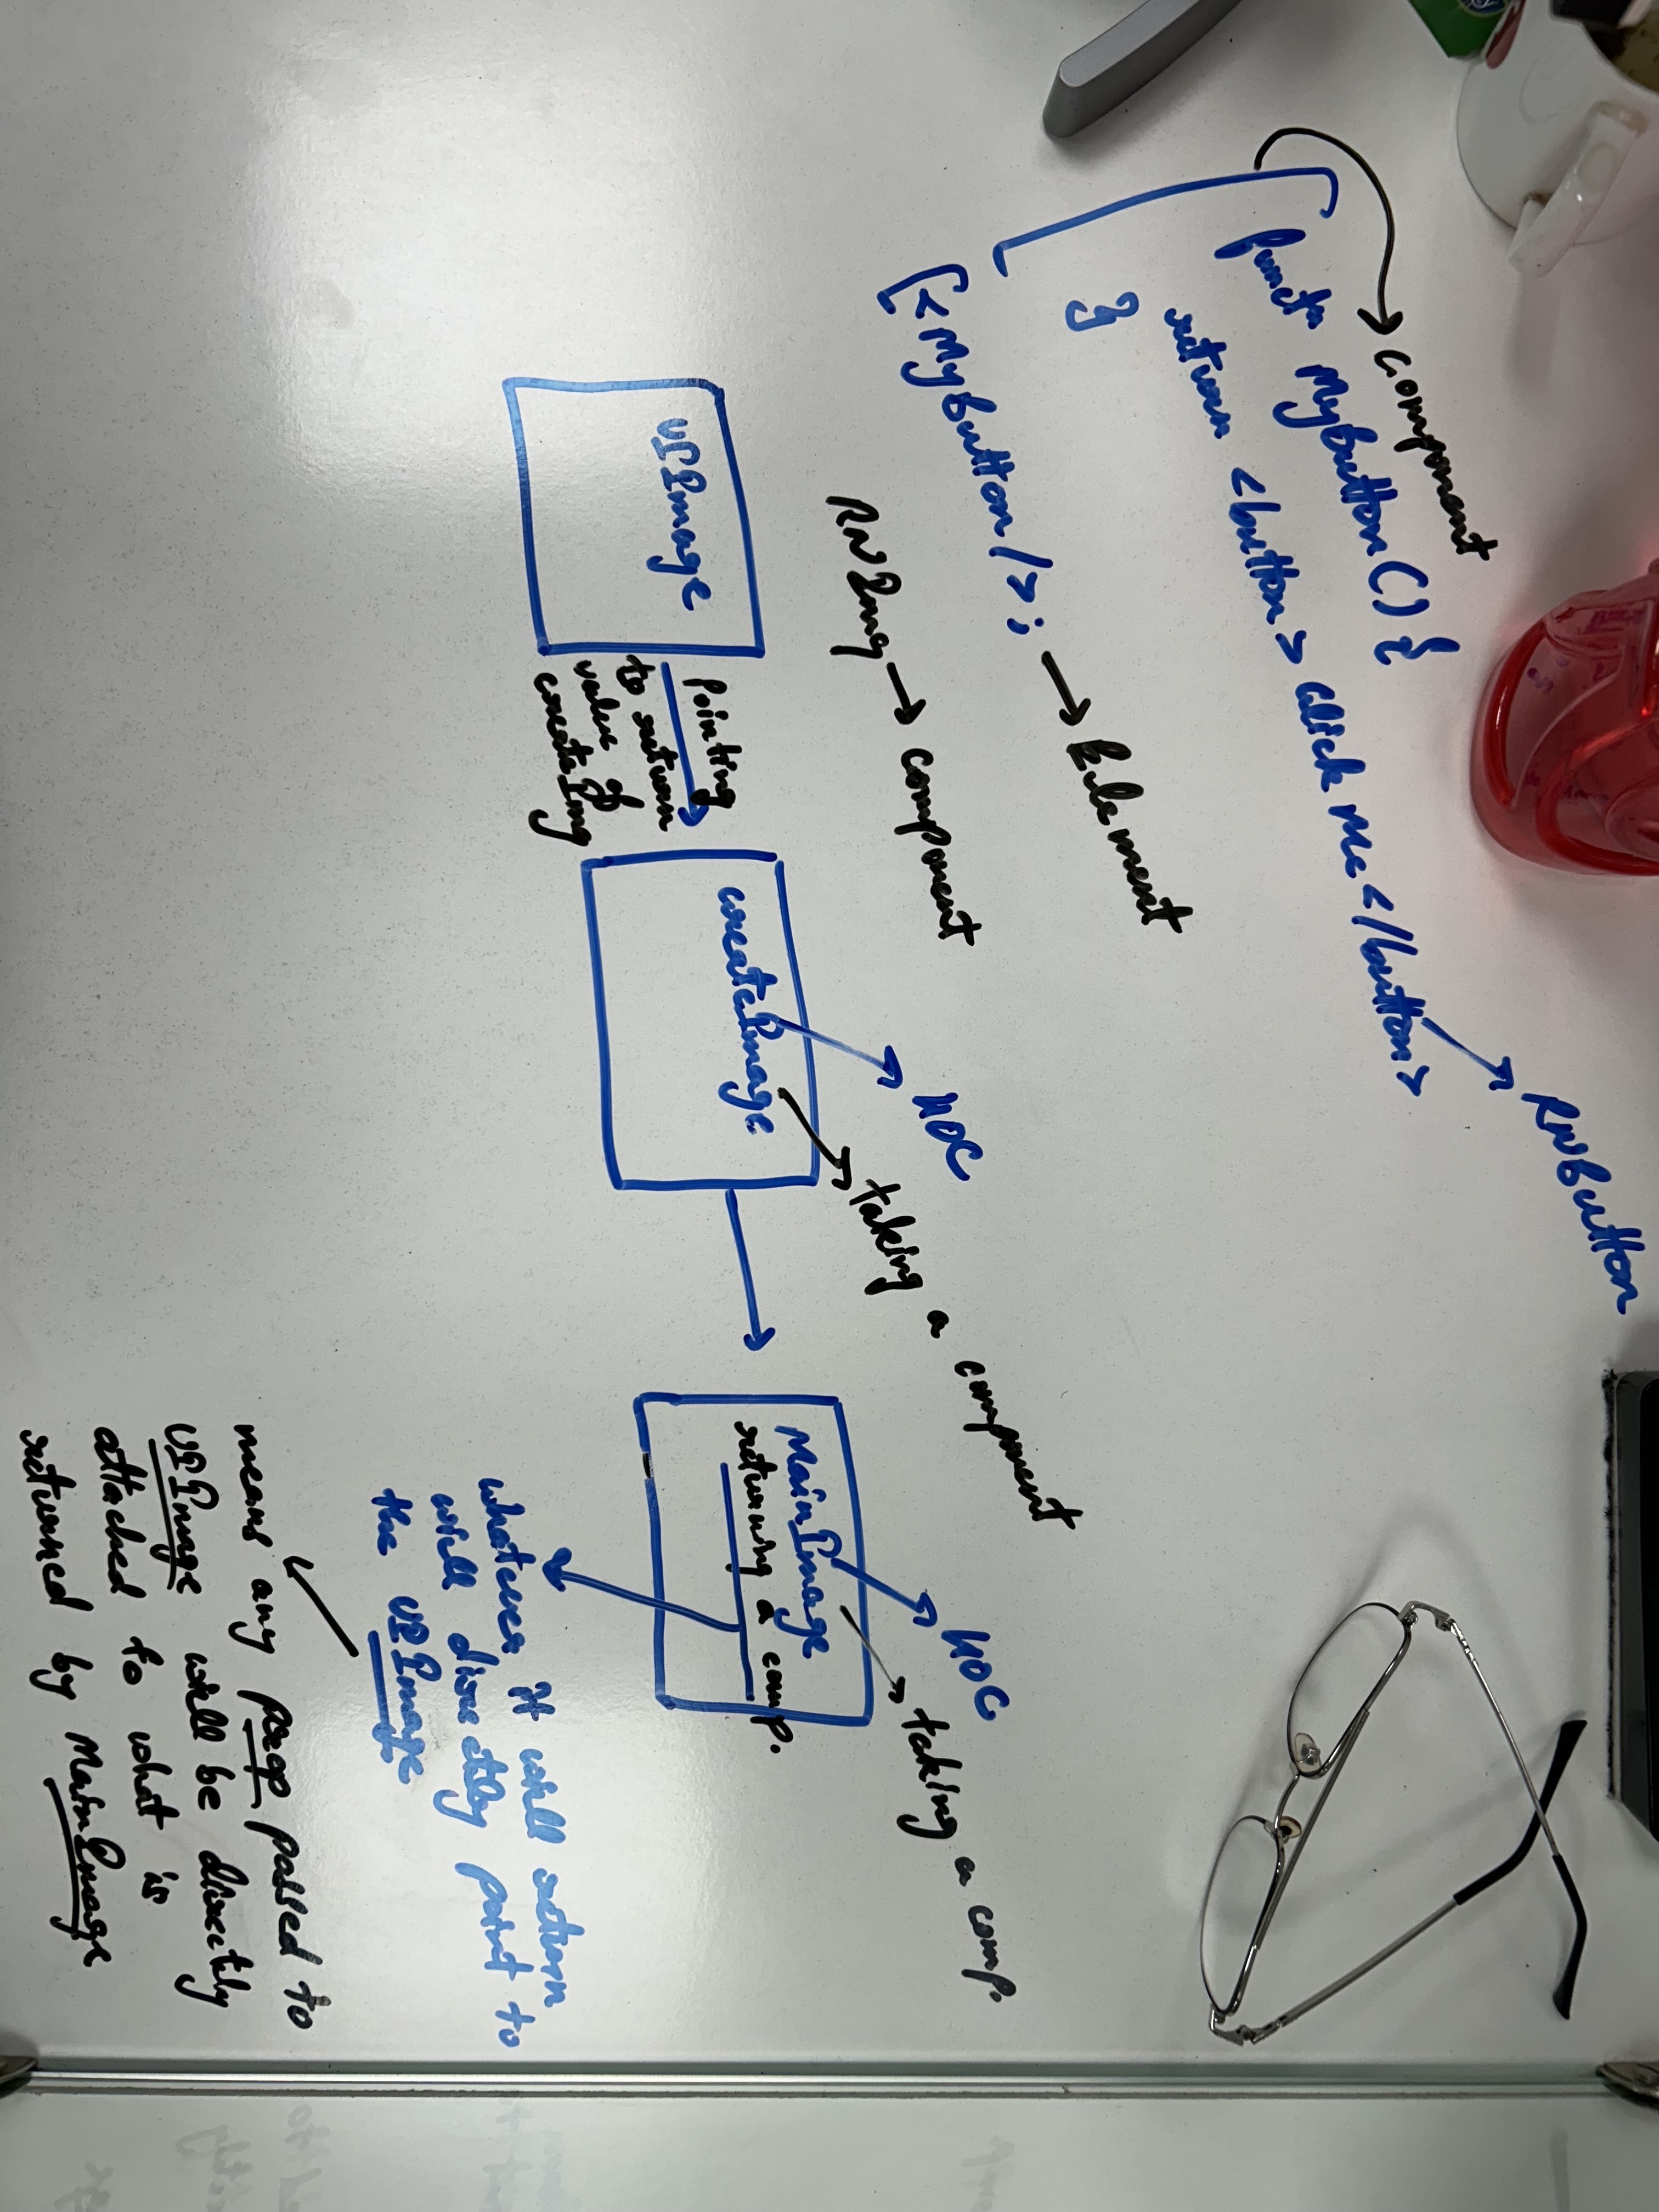 component
functn Mybutton() {
return <button> Click Me </button>
RNbutton
}
<Mybutton/>; → Element
RNImg → component
UIImage
Pointing
to return
value of
createImg
createImage
HOC
taking a component
MainImage
returning a comp.
HOC
taking a comp.
whatever it will return
will directly point to
the UIImage
means any prop passed to
UIImage will be directly
attached to what is
returned by MainImage